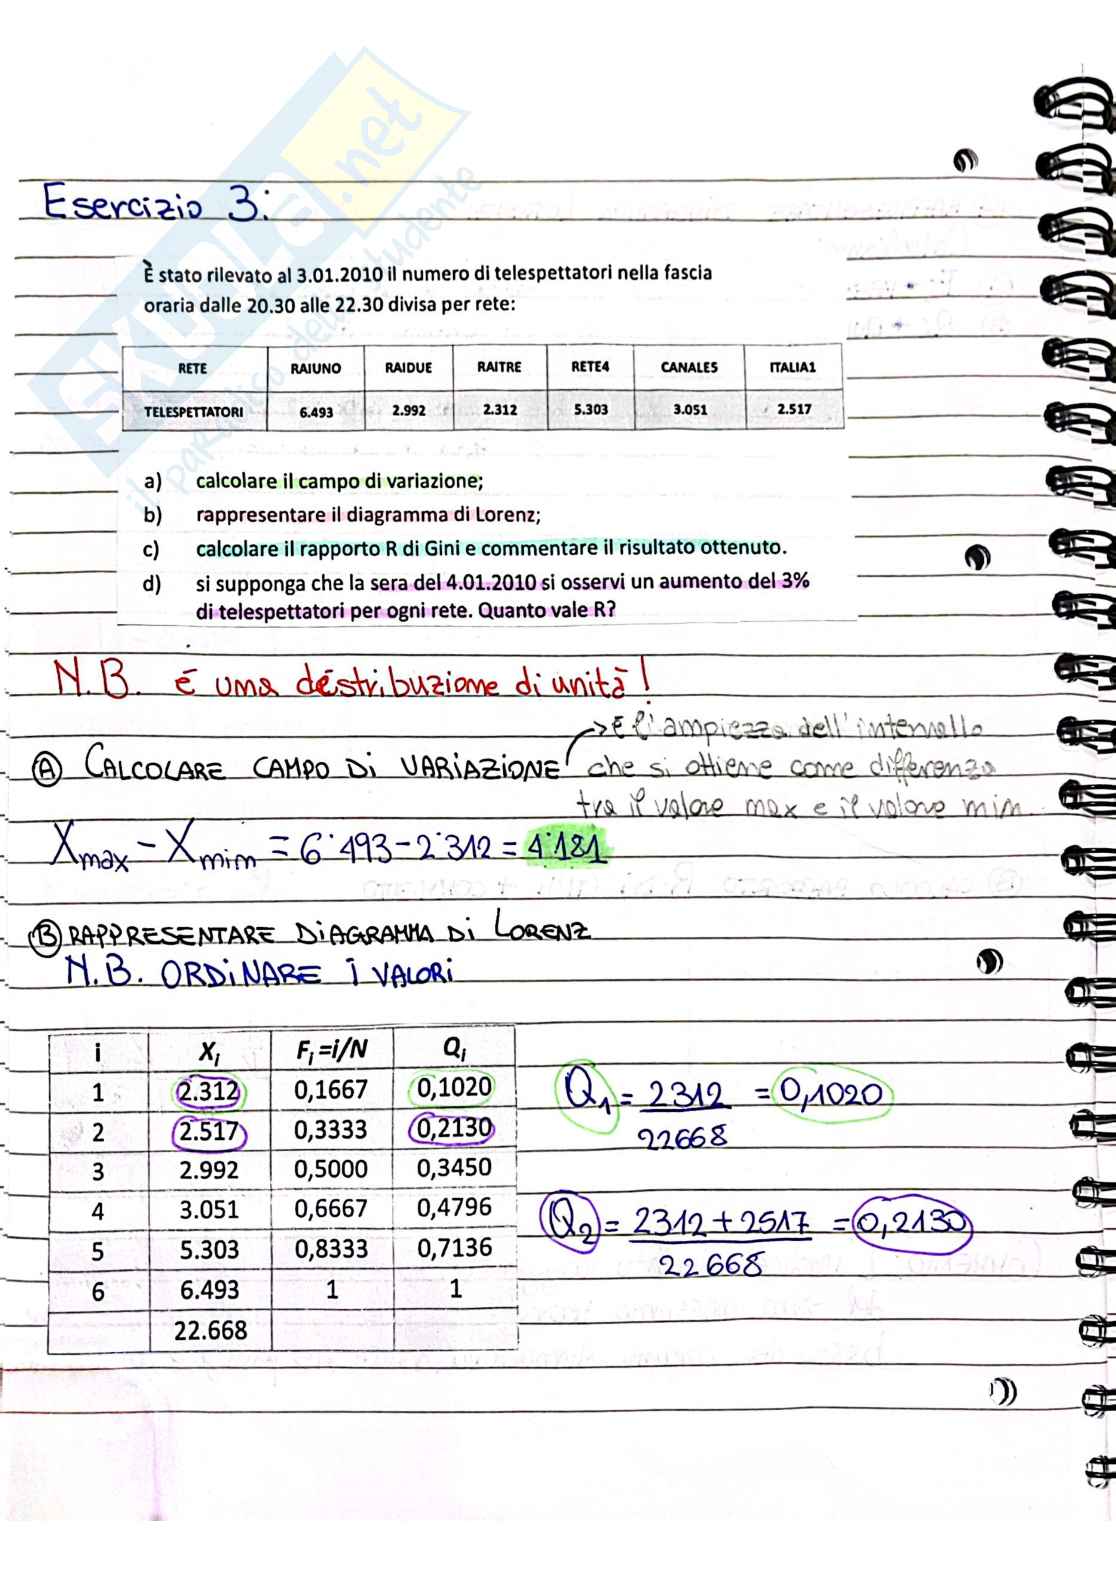 SKUOLA.net
il paradiso dello studente
Esercizio 3:
È stato rilevato al 3.01.2010 il numero di telespettatori nella fascia
oraria dalle 20.30 alle 22.30 divisa per rete:
RETE RAIUNO RAIDUE RAITRE RETE4 CANALE5 ITALIA1
TELESPETTATORI 6.493 2.992 2.312 5.303 3.051 2.517
a) calcolare il campo di variazione;
b) rappresentare il diagramma di Lorenz;
c) calcolare il rapporto R di Gini e commentare il risultato ottenuto.
d) si supponga che la sera del 4.01.2010 si osservi un aumento del 3%
di telespettatori per ogni rete. Quanto vale R?
N.B. é una distribuzione di unità!
→ È l'ampiezza dell'intervallo
Ⓐ CALCOLARE CAMPO Di VARIAZIONE che si ottiene come differenza
tra il valore max e il valore min.
Xmax - Xmin = 6˙493 - 2˙312 = 4˙181
Ⓑ RAPPRESENTARE DiAGRAMMA Di LORENZ
N.B. ORDiNARE i VALORi
i Xi Fi=i/N Qi
1 2.312 0,1667 0,1020
2 2.517 0,3333 0,2130
3 2.992 0,5000 0,3450
4 3.051 0,6667 0,4796
5 5.303 0,8333 0,7136
6 6.493 1 1
22.668
Q1 = 2312 / 22668 = 0,1020
Q2 = 2312 + 2517 / 22668 = 0,2130